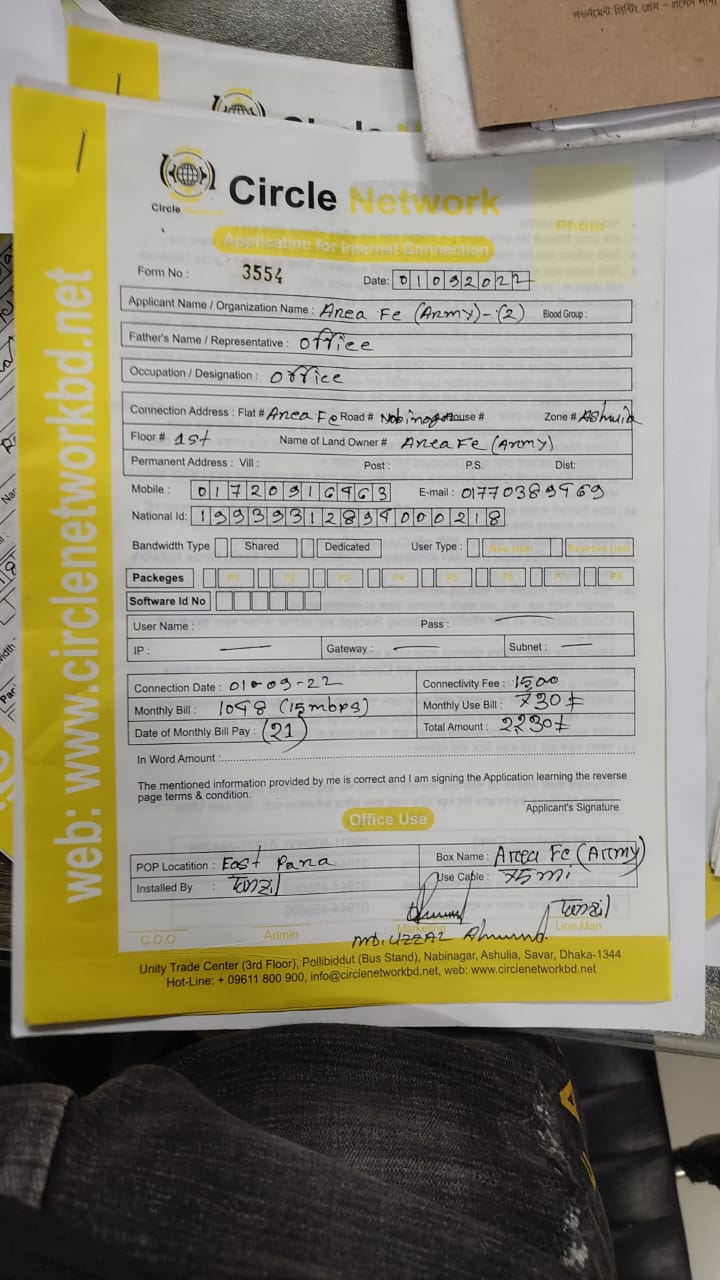 Circle Network
Circle Network
Application for Internet Connection
Photo
Form No : 3554
Date: 01092022
Applicant Name / Organization Name : Area Fe (Army)-(2) Blood Group :
Father's Name / Representative : office
Occupation / Designation : office
Connection Address : Flat # Area Fe Road # House # Zone # Ashulia
Floor # 1st Name of Land Owner # Area Fe (Army)
Permanent Address : Vill : Post : P.S. Dist:
Mobile : E-mail : 01770389969
National Id:
Bandwidth Type Shared Dedicated User Type : New User Reactive User
Packeges P1 P2 P3 P4 P5 P6 P7 P8
Software Id No
User Name : Pass : —
IP : — Gateway : — Subnet : —
Connection Date : 01-09-22 Connectivity Fee : 1500
Monthly Bill : 1098 (15mbps) Monthly Use Bill : 730
Date of Monthly Bill Pay : (21) Total Amount : 2230
In Word Amount :
The mentioned information provided by me is correct and I am signing the Application learning the reverse
page terms & condition.
Applicant's Signature
Office Use
POP Locatition : East Para Box Name : Area Fe (Army)
Installed By : তানজিল Use Cable : 75 mi
C.O.O Admin Marketing Line Man
MD. UZZAL Ahmmed
Unity Trade Center (3rd Floor), Pollibiddut (Bus Stand), Nabinagar, Ashulia, Savar, Dhaka-1344
Hot-Line: + 09611 800 900, info@circlenetworkbd.net, web: www.circlenetworkbd.net
web: www.circlenetworkbd.net